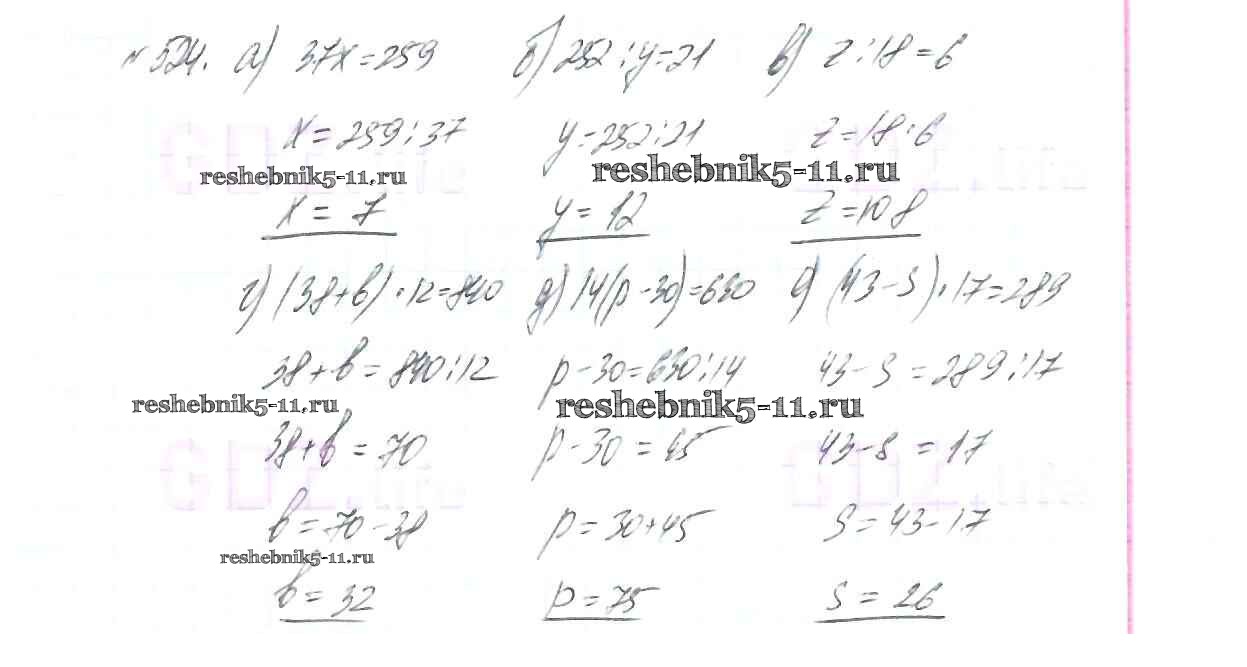 № 524. а) 37x=259 б) 252:y=21 в) z:18=6
x=259:37 y=252:21 z=18·6
reshebnik5-11.ru reshebnik5-11.ru
x=7 y=12 z=108
г) (38+b)·12=840 д) 14(p-30)=630 е) (43-s)·17=289
38+b=840:12 p-30=630:14 43-s=289:17
reshebnik5-11.ru reshebnik5-11.ru
38+b=70 p-30=45 43-s=17
b=70-38 p=30+45 s=43-17
reshebnik5-11.ru
b=32 p=75 s=26